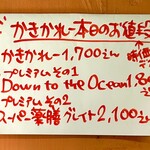 かきかれー本日のお値段
かきかれー1,700えん
プレミアムその1
Down to the Ocean!
プレミアムその2
スーパー薬膳グレイト2,100えん